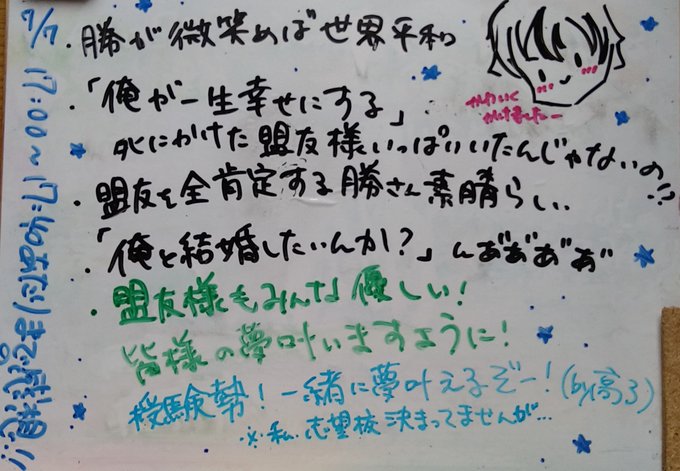 7/7 17:00〜17:40まだ
・勝が微笑めば世界平和
かわいく
かけましたー
・「俺が一生幸せにする」
死にかけた盟友様いっぱいいたんじゃないの!?
・盟友を全肯定する勝さん素晴らしい
・「俺と結婚したいんか?」んあ゛あ゛あ゛あ゛
・盟友様もみんな優しい!
皆様の夢叶いますように!
受験勢!一緒に夢叶えるぞー!(by高3)
※私、志望校決まってませんが…